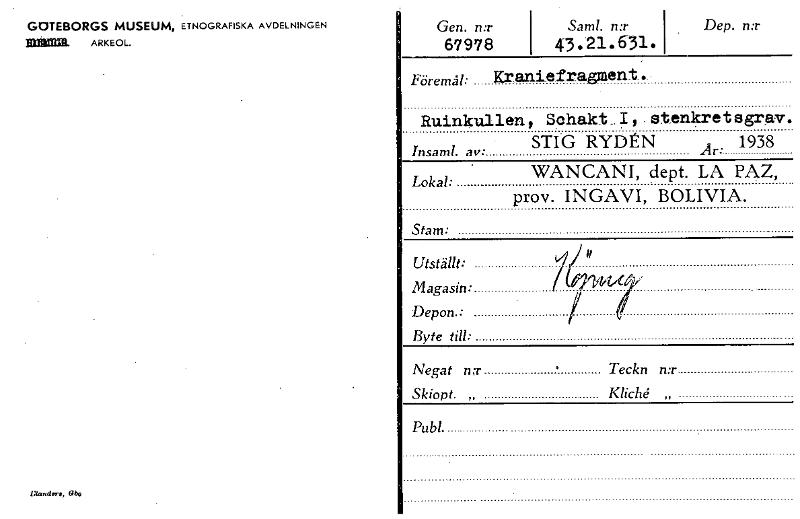 GÖTEBORGS MUSEUM, ETNOGRAFISKA AVDELNINGEN
ARKEOL.
Gen. n:r Saml. n:r Dep. n:r
67978 43.21.631.
Föremål: Kraniefragment.
Ruinkullen, Schakt I, stenkretsgrav.
Insaml. av: STIG RYDÉN År: 1938
Lokal: WANCANI, dept. LA PAZ,
prov. INGAVI, BOLIVIA.
Stam:
Utställt:
Magasin:
Depon.:
Byte till:
Negat n:r Teckn n:r
Skiopt. „ Kliché „
Publ.
Elanders, Gbg